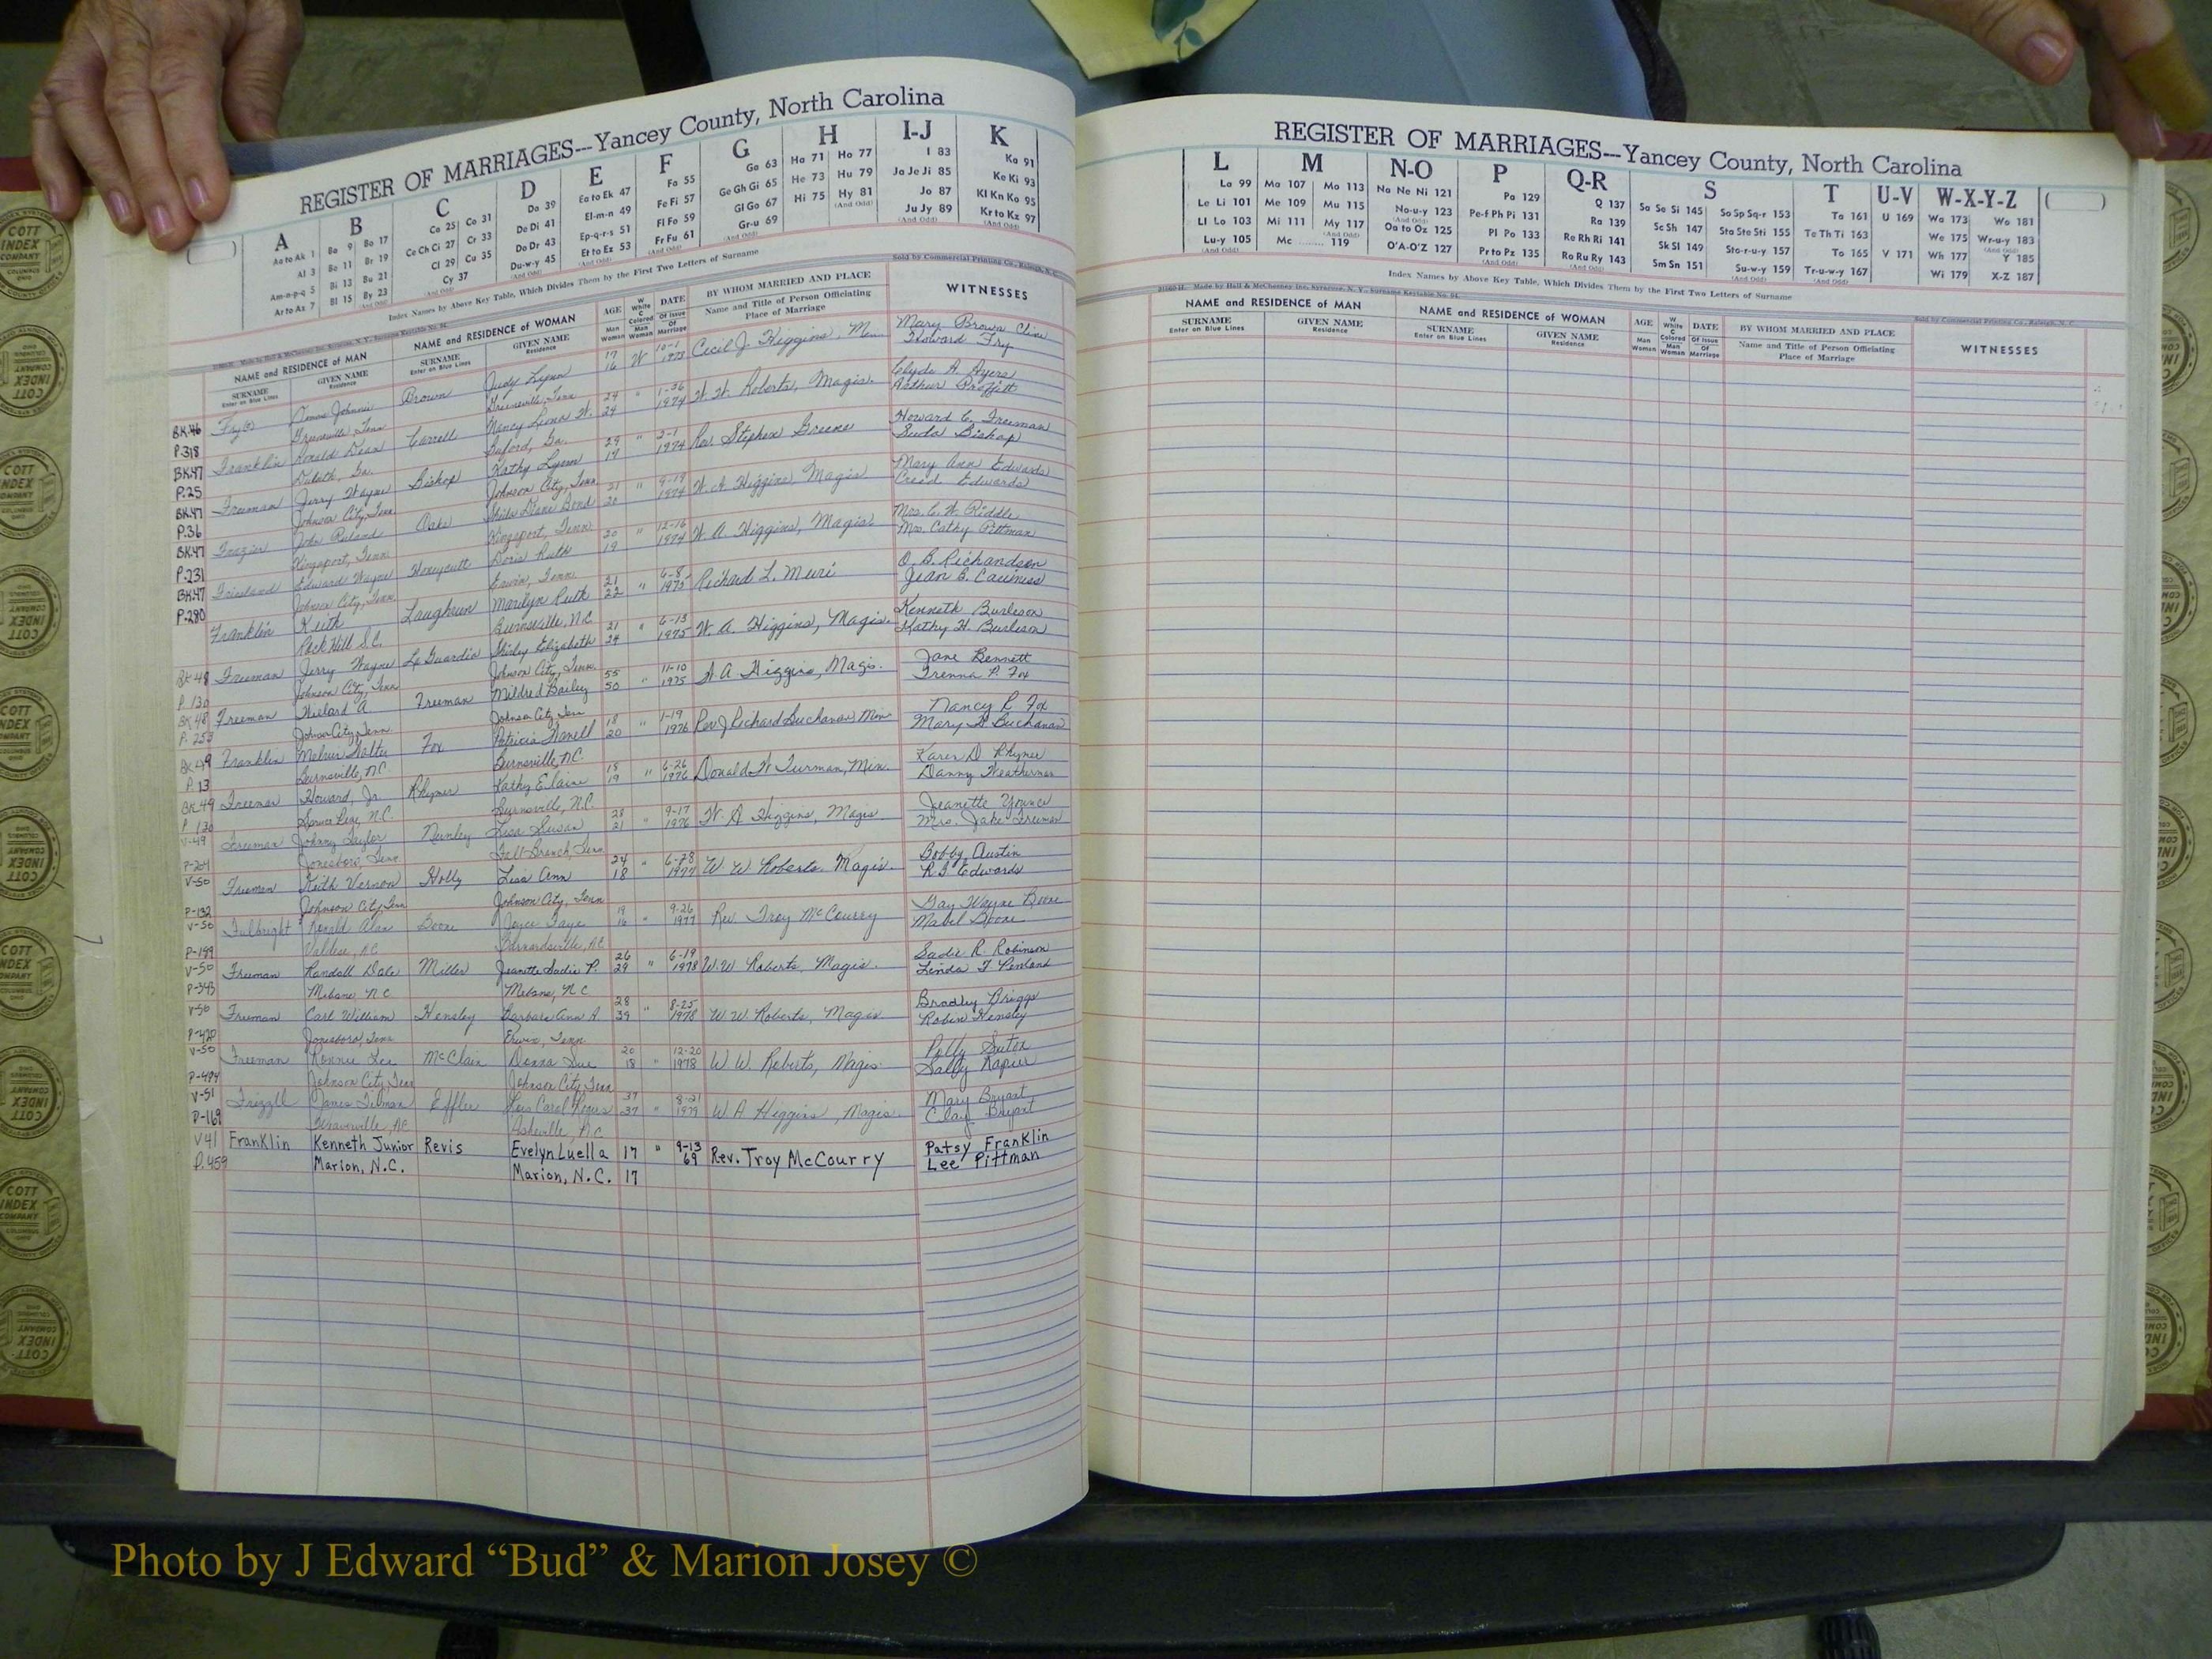 REGISTER OF MARRIAGES---Yancey County, North Carolina
A B C D E F G H I-J K
Aa to Ak 1 Ba 9 Bo 17 Ca 25 Co 31 Da 39 Ea to Ek 47 Fa 55 Ga 63 Ha 71 Ho 77 I 83 Ka 91
Al 3 Be 11 Br 19 Ce Ch Ci 27 Cr 33 De Di 41 El-m-n 49 Fe Fi 57 Ge Gh Gi 65 He 73 Hu 79 Ja Je Ji 85 Ke Ki 93
Am-n-p-q 5 Bi 13 Bu 21 Cl 29 Cu 35 Do Dr 43 Ep-q-r-s 51 Fl Fo 59 Gl Go 67 Hi 75 Hy 81 Jo 87 Kl Kn Ko 95
Ar to Az 7 Bl 15 By 23 Cy 37 Du-w-y 45 Et to Ez 53 Fr Fu 61 Gr-u 69 Ju Jy 89 Kr to Kz 97
Index Names by Above Key Table, Which Divides Them by the First Two Letters of Surname
Sold by Commercial Printing Co., Raleigh, N. C.
NAME and RESIDENCE of MAN NAME and RESIDENCE of WOMAN AGE W White C Colored DATE BY WHOM MARRIED AND PLACE WITNESSES
SURNAME Enter on Blue Lines GIVEN NAME Residence SURNAME Enter on Blue Lines GIVEN NAME Residence Man Woman Man Woman Of Issue Of Marriage Name and Title of Person Officiating Place of Marriage
BK.46 Fry Johnnie Brown Judy Lynn 17 W 10-1 Cecil J. Higgins, Min. Mary Brown Cline
P.318 Greeneville, Tenn Greeneville, Tenn 16 1973 Howard Fry
BK.47 Franklin Ronald Dean Carroll Nancy Leona W. 24 " 1974 W. W. Roberts, Magis. Clyde A. Ayers
P.25 Duluth, Ga. Buford, Ga. 24 Arthur Proffitt
BK.47 Freeman Jerry Wayne Bishop Kathy Lynn 29 " 2-1 Rev. Stephen Greene Howard C. Freeman
P.36 Johnson City, Tenn Johnson City, Tenn 19 1974 Bishop
BK.47 Frazier John Oake Sheila Diane Bond 21 " 9-19 W. A. Higgins Magis Mary Ann Edwards
P.231 Kingsport, Tenn Kingsport, Tenn 20 1974 Creed Edwards
BK.47 Edward Wayne Honeycutt Doris Ruth 20 " 12-16 W. A. Higgins, Magis. Mrs. C. W. Riddle
P.280 Johnson City, Tenn Erwin, Tenn. 19 1974 Mrs. Cathy Pittman
Franklin Keith Laughrun Marilyn Ruth 21 " 6-8 Richard L. Muri O. B. Richardson
Rock Hill S.C. Burnsville, N.C. 22 1975 Jean B.
BK 48 Freeman Jerry Wayne La Guardia Shirley Elizabeth 21 " 6-13 W. A. Higgins, Magis. Kenneth Burleson
P. 130 Johnson City, Tenn Johnson City, Tenn. 24 1975 Kathy H. Burleson
BK 48 Freeman Willard A Freeman Mildred Bailey 55 " 11-10 W. A. Higgins, Magis. Jane Bennett
P. 253 Johnson City, Tenn. Johnson City, Tenn 50 1975 Trenna P. Fox
BK 49 Franklin Melvin Walter Fox Patricia 18 " 1-19 Rev J Richard Buchanan Min Nancy R Fox
P. 13 Burnsville, N.C. Burnsville, N.C. 20 1976 Mary H Buchanan
BK 49 Freeman Howard, Jr. Rhymer Kathy Elaine 18 " 6-26 Donald W Turman, Min. Karen D Rhymer
P 130 Spruce Pine, N.C. Burnsville, N.C. 19 1976 Danny Weatherman
V-49 Freeman Johnny Taylor Nunley Lisa Susan 28 " 9-17 W. A Higgins, Magis Jeanette Younce
P-204 Jonesboro, Tenn Fall Branch, Tenn 21 1976 Mrs. Jake Freeman
V-50 Freeman Keith Vernon Holly Lisa Ann 24 " 6-28 W W Roberts. Magis. Bobby Austin
P-132 Johnson City, Tenn Johnson City, Tenn 18 1977 Edwards
V-50 Fulbright Ronald Alan Boone Joyce Faye 19 " 9-26 Rev. Troy McCourry Gay Wayne Boone
P-199 Valdese, N.C Barnardsville, N.C 16 1977 Mabel Boone
V-50 Freeman Randall Dale Miller Jeanette Sadie P. 26 " 6-19 W.W Roberts, Magis. Sadie R. Robinson
P-343 Mebane, N C Mebane, N C 29 1978 Linda F Penland
V-50 Freeman Carl William Hensley Barbara Ann A. 28 " 8-25 W W. Roberts, Magis. Bradley Briggs
P-420 Jonesboro, Tenn Erwin, Tenn 39 1978 Robin Hensley
V-50 Freeman Ronnie Lee McClain Donna Sue 20 " 12-20 W W. Roberts, Magis. Polly Suton
P-494 Johnson City, Tenn Johnson City, Tenn 18 1978 Sally Rapier
V-51 Frizzle James Tilman Effler Lois Carol Rogers 37 " 8-21 W A Higgins, Magis. Mary Bryant
P-169 Weaverville, N.C Asheville, N.C 37 1979 Clay Bryant
V41 Franklin Kenneth Junior Revis Evelyn Luella 17 " 9-13 Rev. Troy McCourry Patsy Franklin
P.459 Marion, N.C. Marion, N.C. 17 69 Lee Pittman
REGISTER OF MARRIAGES---Yancey County, North Carolina
L M N-O P Q-R S T U-V W-X-Y-Z
La 99 Ma 107 Mo 113 Na Ne Ni 121 Pa 129 Q 137 Sa Se Si 145 So Sp Sq-r 153 Ta 161 U 169 Wa 173 Wo 181
Le Li 101 Me 109 Mu 115 No-u-y 123 Pe-f Ph Pi 131 Ra 139 Sc Sh 147 Sta Ste Sti 155 Te Th Ti 163 We 175 Wr-u-y 183
Ll Lo 103 Mi 111 My 117 Oa to Oz 125 Pl Po 133 Re Rh Ri 141 Sk Sl 149 Sto-r-u-y 157 To 165 V 171 Wh 177 Y 185
Lu-y 105 Mc ........ 119 O'A-O'Z 127 Pr to Pz 135 Ro Ru Ry 143 Sm Sn 151 Su-w-y 159 Tr-u-w-y 167 Wi 179 X-Z 187
Index Names by Above Key Table, Which Divides Them by the First Two Letters of Surname
NAME and RESIDENCE of MAN NAME and RESIDENCE of WOMAN AGE W White C Colored DATE BY WHOM MARRIED AND PLACE WITNESSES
SURNAME Enter on Blue Lines GIVEN NAME Residence SURNAME Enter on Blue Lines GIVEN NAME Residence Man Woman Man Woman Of Issue Of Marriage Name and Title of Person Officiating Place of Marriage
Photo by J Edward “Bud” & Marion Josey ©